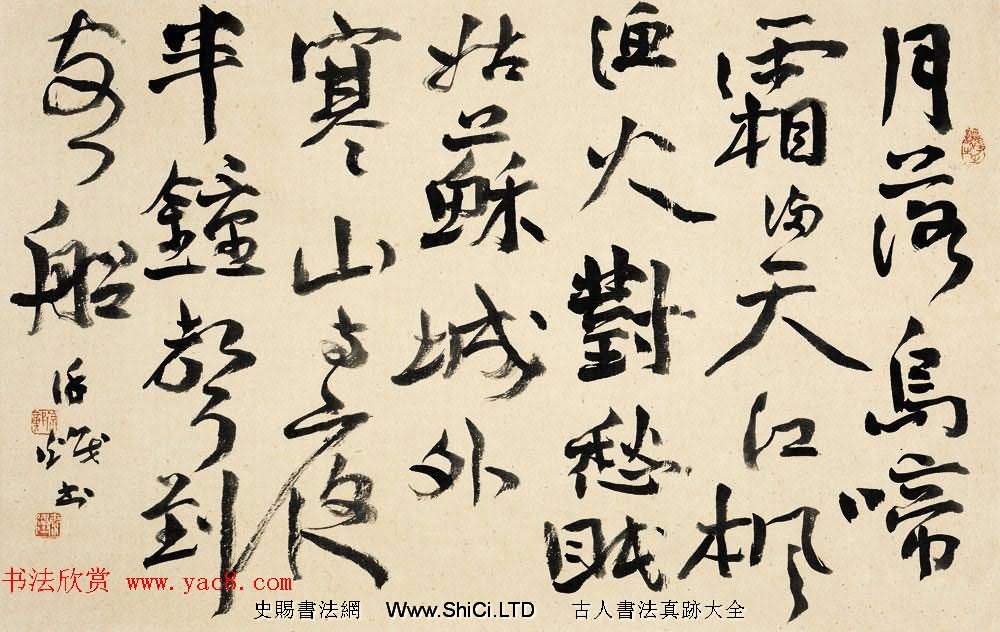 月落烏啼
霜滿天江楓
漁火對愁眠
姑蘇城外
寒山寺夜
半鐘聲到
客船
書
书法欣赏 www.yac8.com
史賜書法網 Www.ShiCi.LTD 古人書法真跡大全